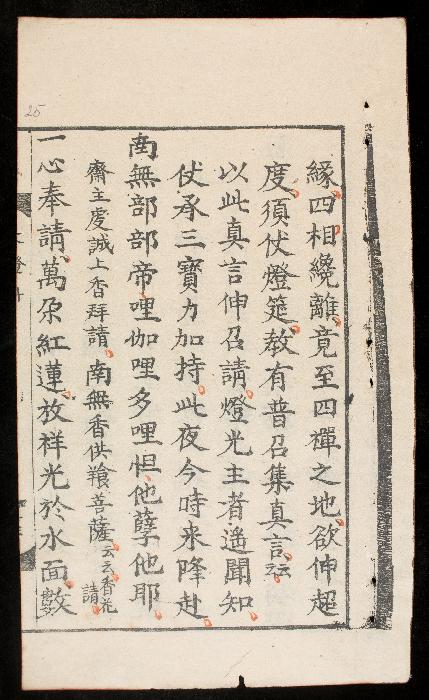 緣四相纔離竟至四禪之地欲伸超
度須仗燈筵教有普召集真言云云
以此真言伸召請燈光主者遙聞知
仗承三寶力加持此夜今時来降赴
南無部部帝哩伽哩多哩怛他孽他耶
齋主虔誠上香拜請 南無香供飬菩薩云云香花請
一心奉請萬朶紅蓮放祥光於水面數
25